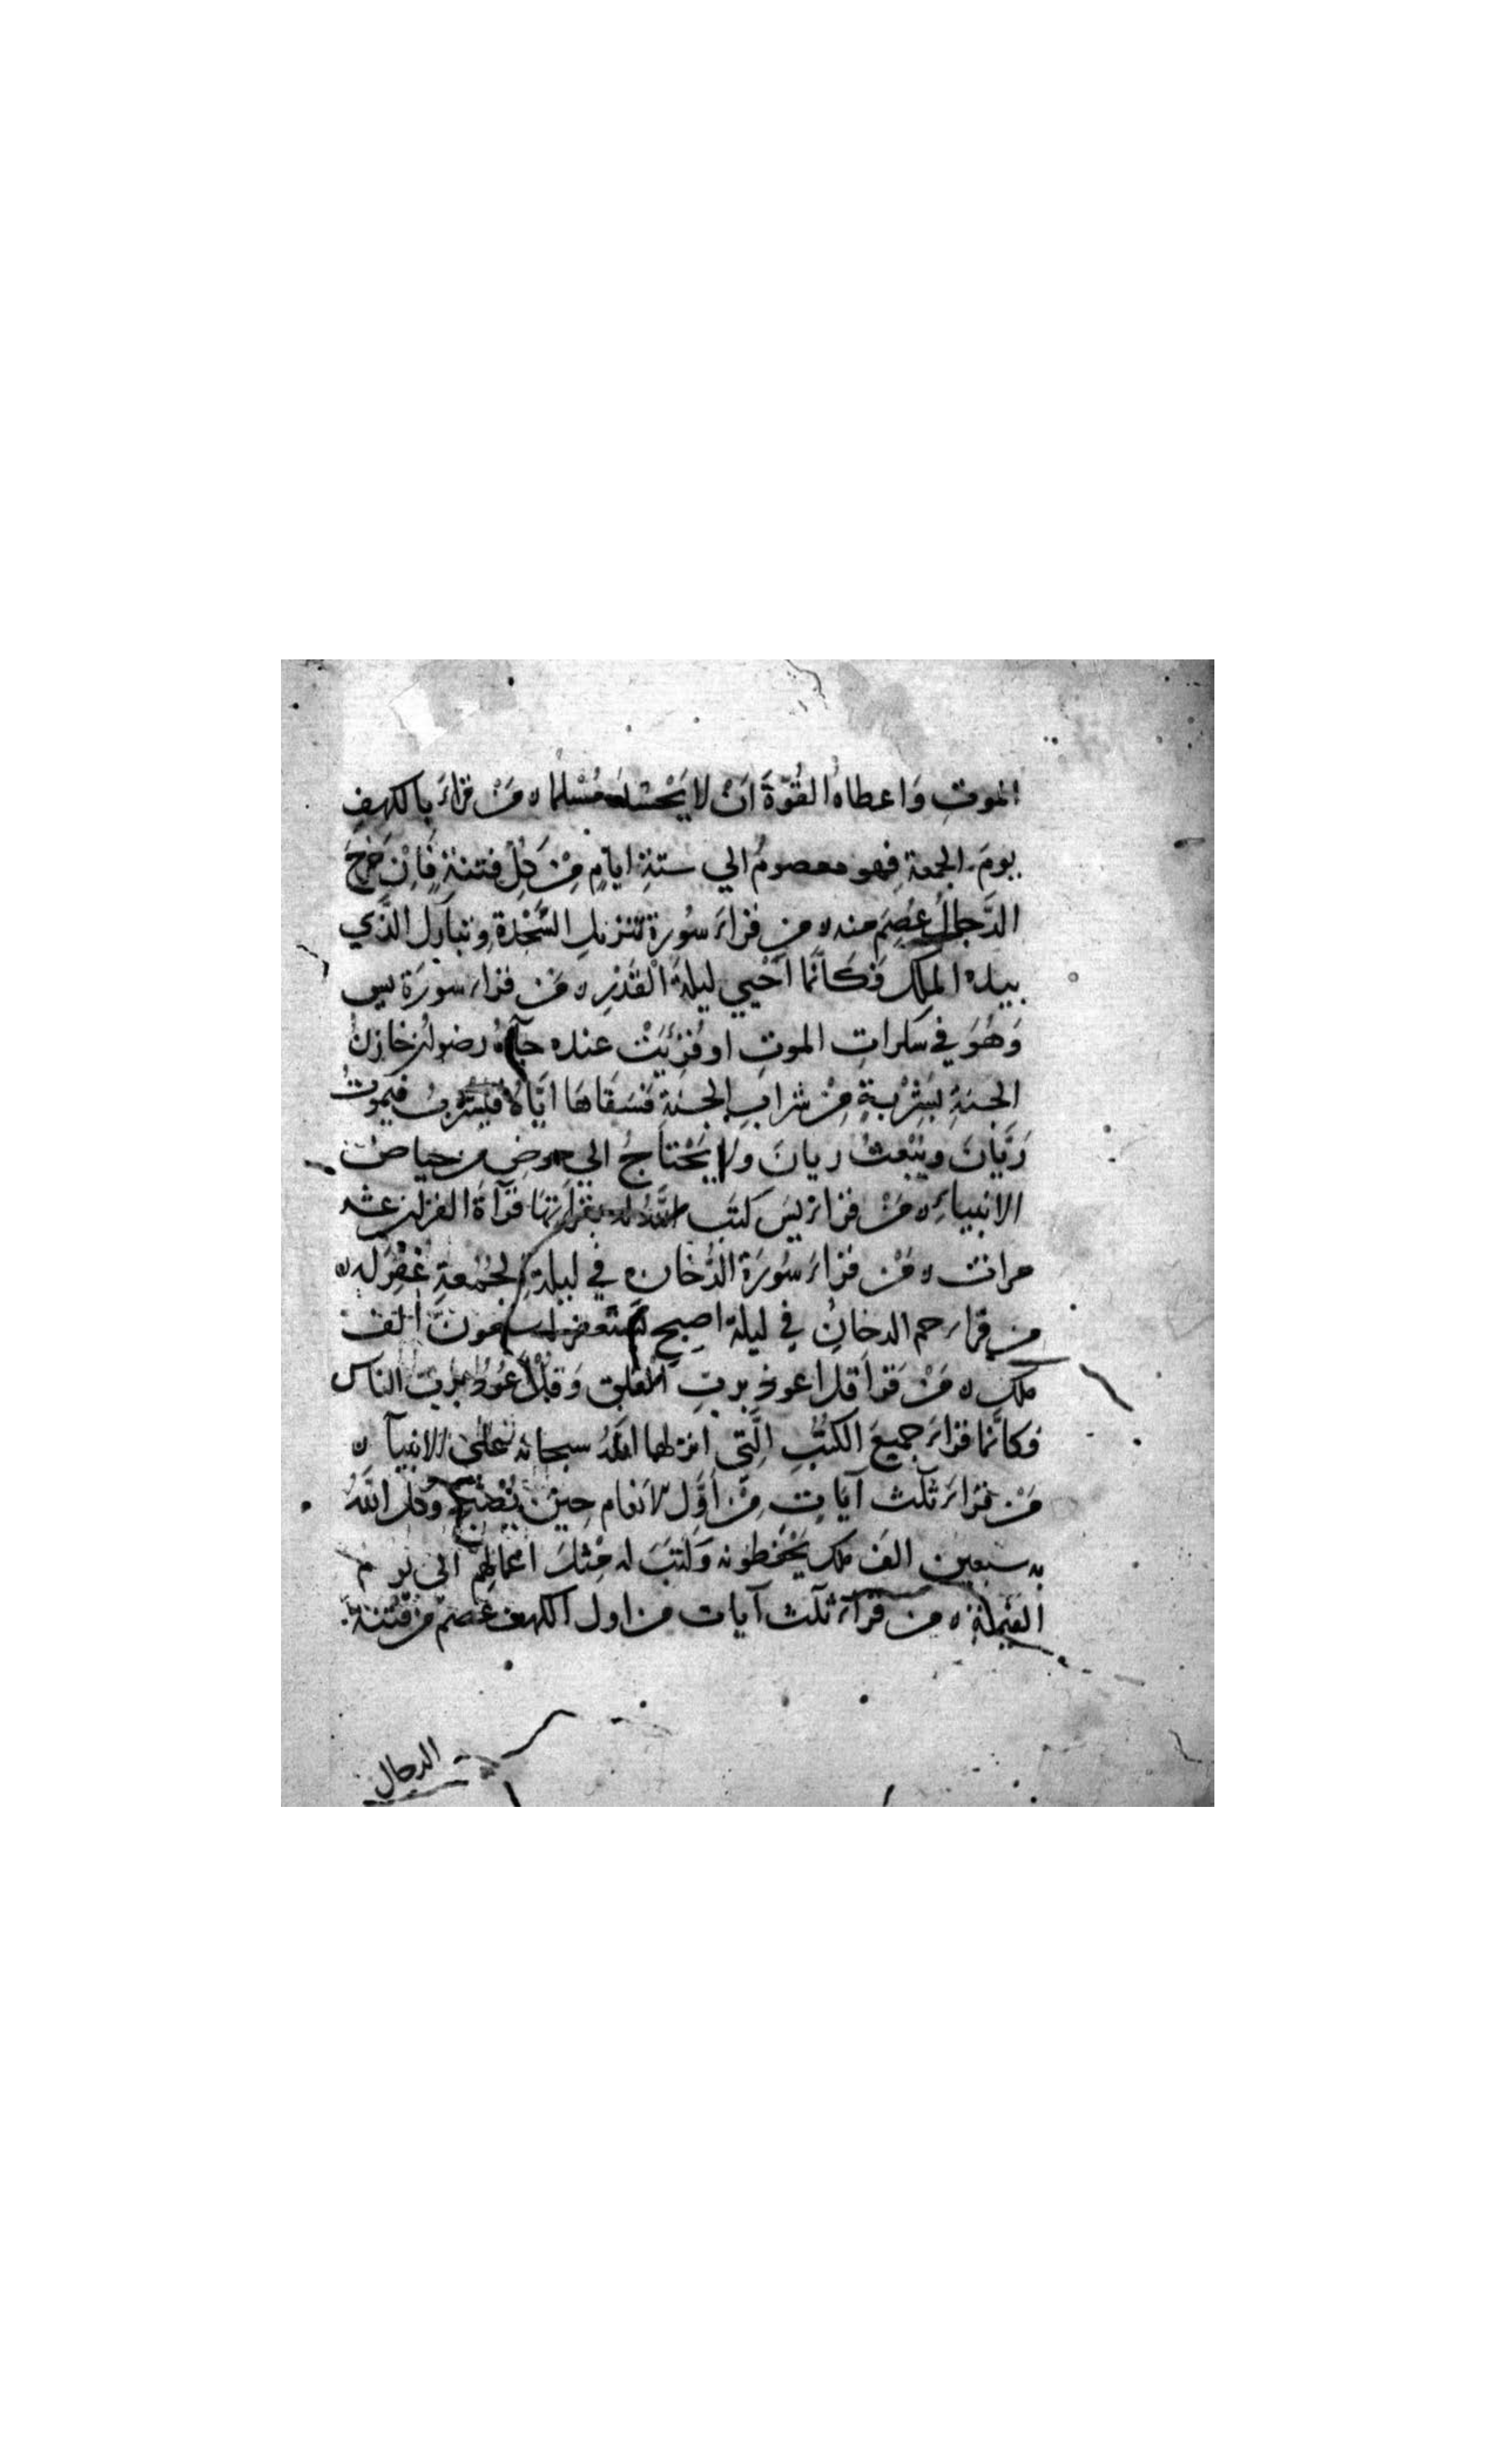 الموتِ وَاعطاه القُوّةَ اَنْ لا يَحْسُدَ مُسْلما ه مَنْ قراءَ بالكهفِ
يومَ الجمعة فهو معصومٌ الي ستةِ ايامٍ مِنْ كلِ فتنةٍ فَاِنْ خرجَ
الدَّجالُ عُصِمَ منه ه من قراءَ سُورة تنزيل السَّجْدة وتبارك الذَّي
بيده الملك فَكَاَنَّما اَحْيي ليلةَ الْقَدْرِ ه مَن قراء سورَة يس
وَهُوَ في سكراتِ الموتِ او قُرِئَتْ عنده جآءهُ رضوان خازِنُ
الجنةِ بشَرْبةٍ مِنْ شرابِ الجنةِ فَسَقَاهَا اِيَّاهُ فيَشْرب فيموتُ
رَيَّانَ ويُبْعثُ ريانَ ولا يَحْتاجُ الي حوضٍ من حياض
الانبياءِ ه مَنْ قراءَ يس كتَب اللّهُ له بقرآتها قرآةَ القرآن عشر
مرات ه مَنْ قراءَ سُورَة الدُّخان في ليلةِ الجُمُعةِ غُفِرَ له ه
من قراء حم الدخانِ في ليلة اصبح يستغفر له سبعونَ الف
ملك ه مَنْ قراَ قل اعوذ بربِ الفلق وَقلْ اَعُوذُ بربّ الناس
فكاَنَّما قراءَ جميعَ الكتُبِ الَّتِي انزلها اللهُ سبحانه علي الانبيآ ه
مَنْ قراءَ ثلث آيَاتٍ مِنْ اَوَّلِ الانعام حينَ يُصْبح وكل اللّهُ
به سبعين الفَ ملك يَحْفظونه وَكتبَ له مِثلَ اعمالِهِم الي يوم
القيمة ه من قرآءَ ثلث آيات من اول الكهف عُصم من فتنة
الدجال